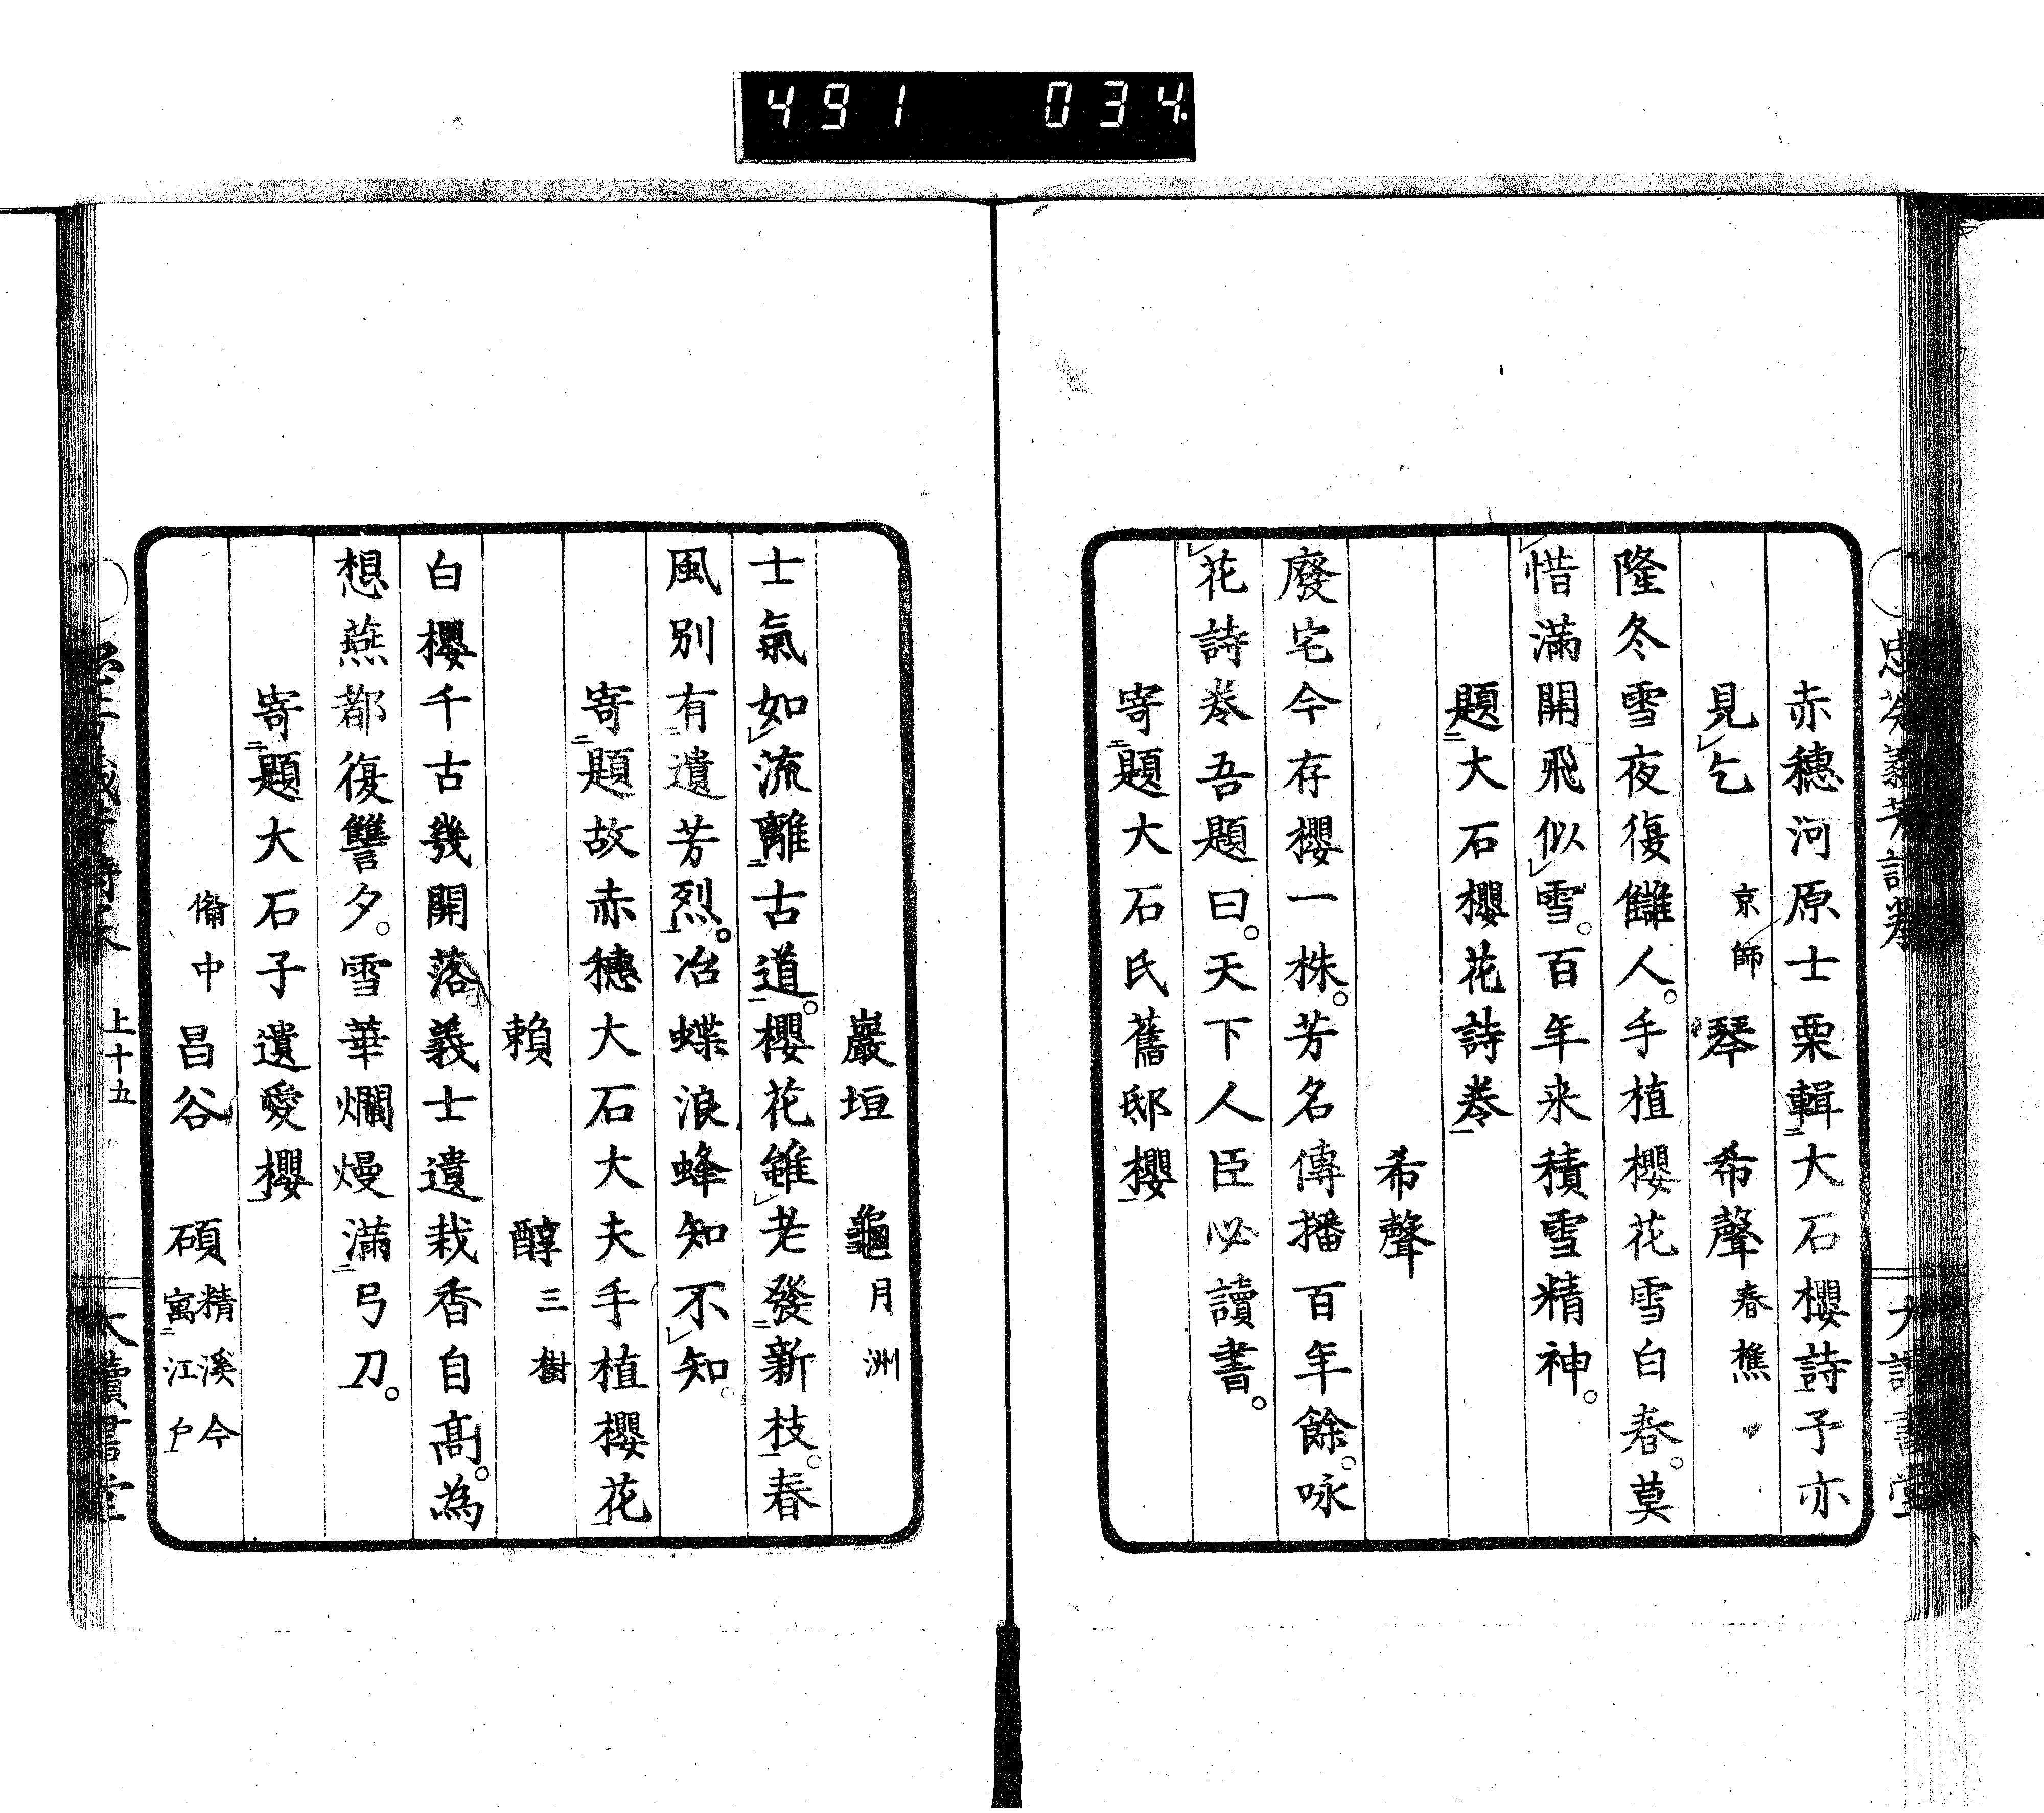 491 034
赤穗河原士栗輯大石櫻詩予亦
見乞 京師 琴 希聲 春樵
隆冬雪夜復讎人。手植櫻花雪白春。莫
惜滿開飛似雪。百年来積雪精神。
題大石櫻花詩卷
希聲
廢宅今存櫻一株。芳名傳播百年餘。咏
花詩卷吾題曰。天下人臣必讀書。
寄題大石氏舊邸櫻
巖垣 龜 月洲
士氣如流離古道。櫻花雖老發新枝。春
風別有遺芳烈。冶蝶浪蜂知不知。
寄題故赤穗大石大夫手植櫻花
賴 醇 三樹
白櫻千古幾開落。義士遺栽香自高。為
想燕都復讐夕。雪華爛熳滿弓刀。
寄題大石子遺愛櫻
備中 昌谷 碩 精溪今寓江戶
上十五